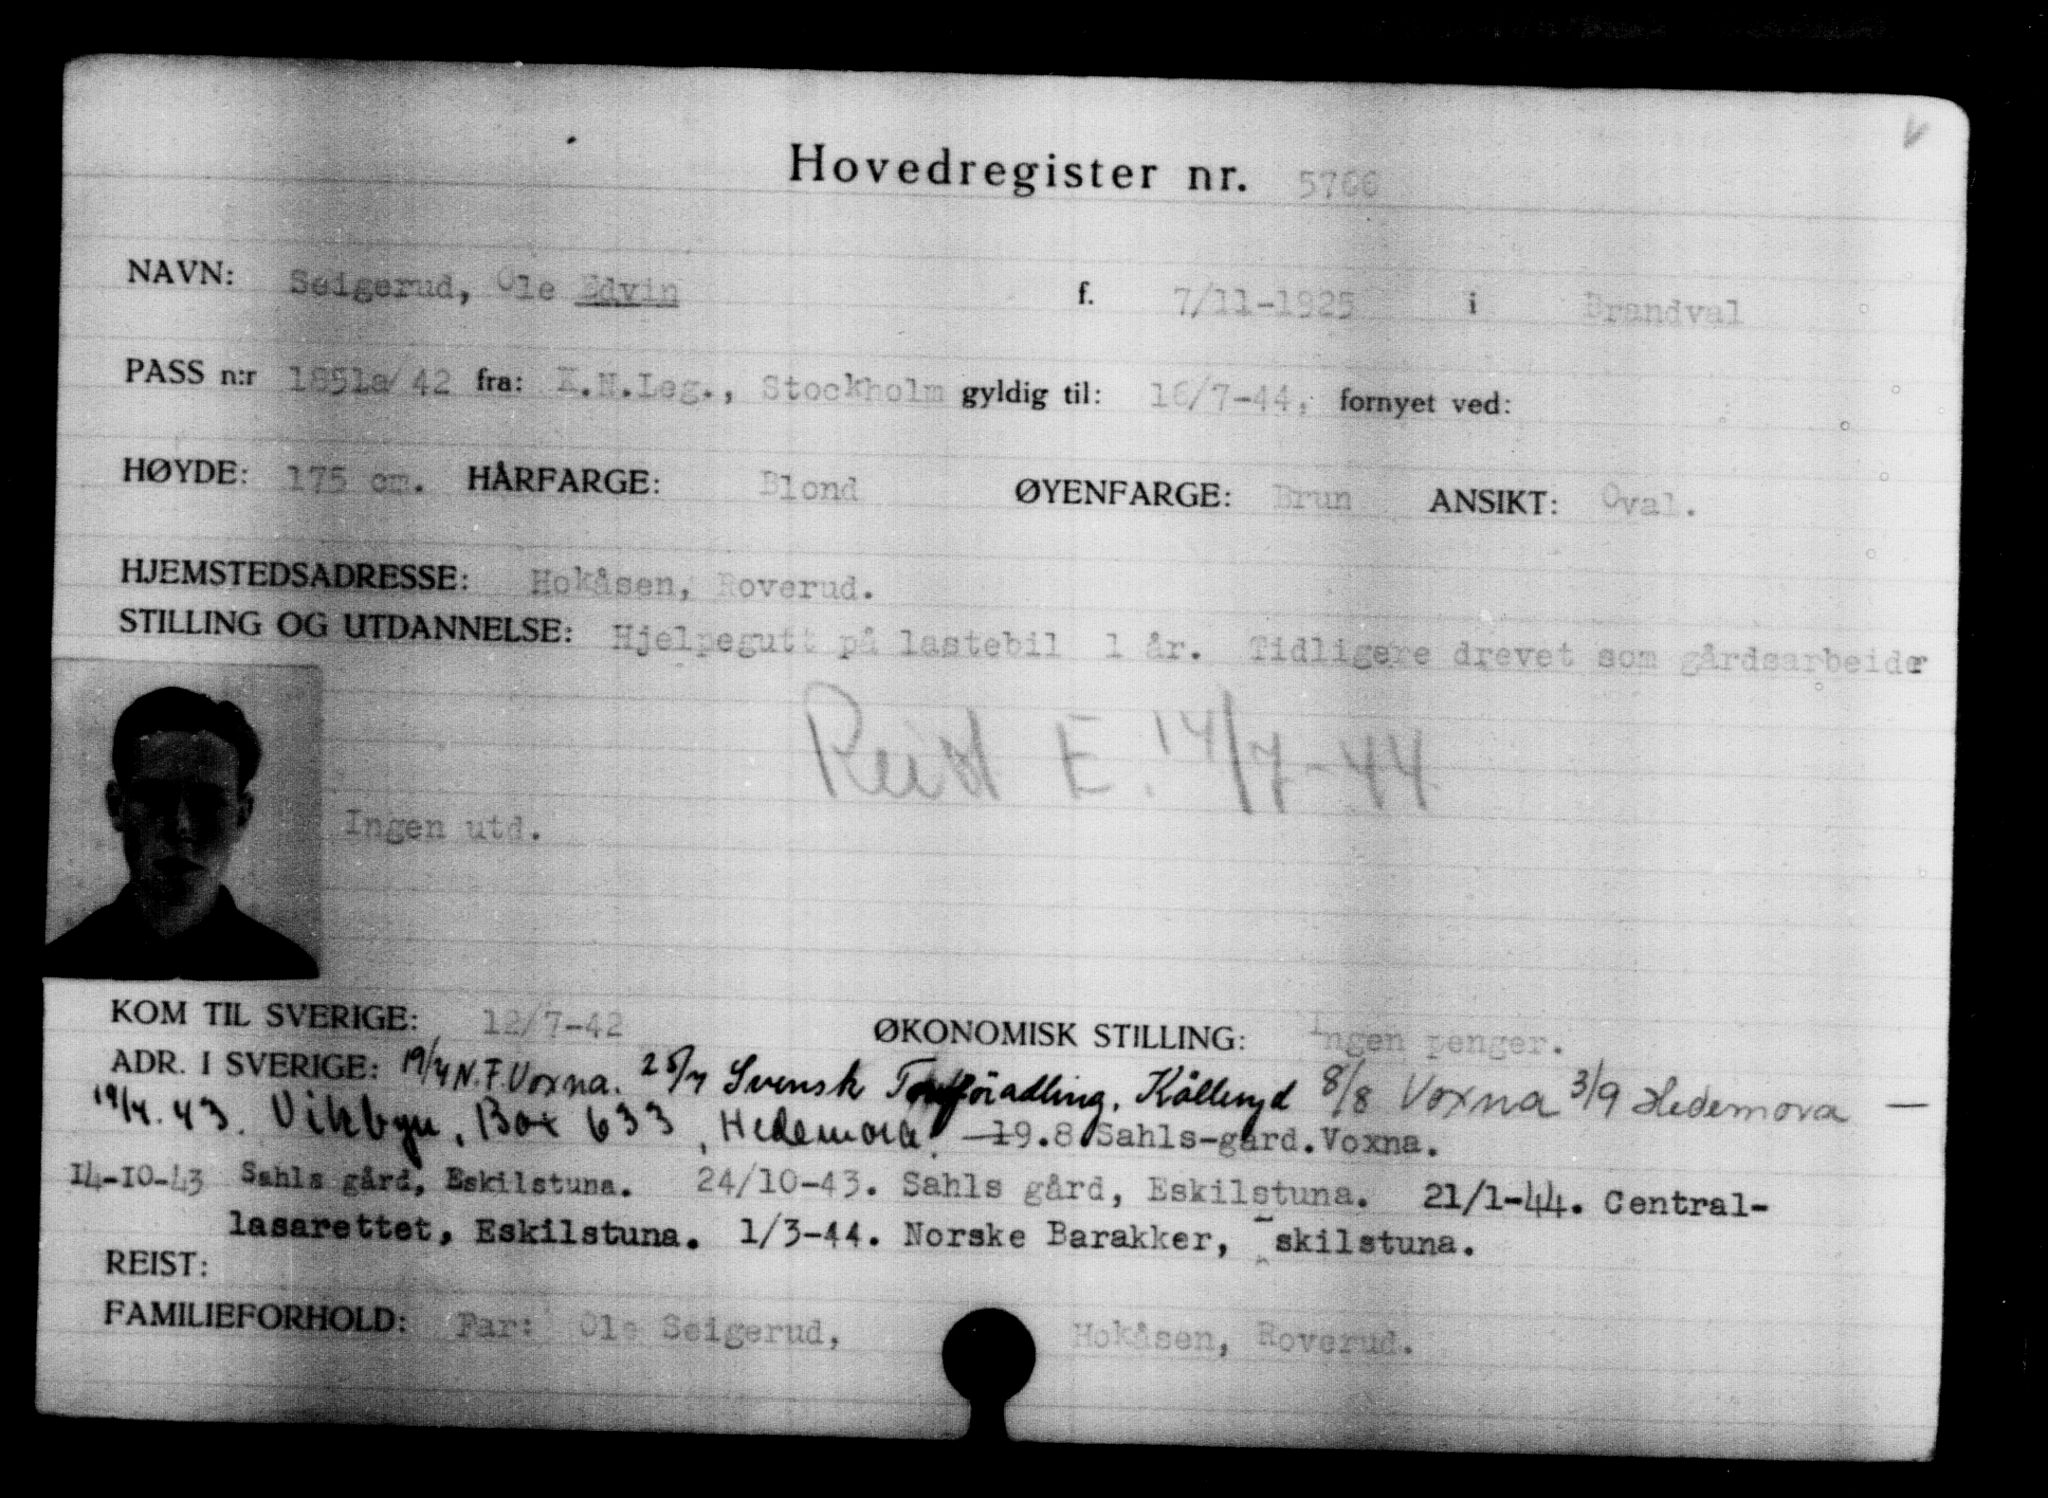 Hovedregister nr. 5766
NAVN: Seigerud, Ole Edvin f. 7/11-1925 i Brandval
PASS n:r 1851a/42 fra: K.N.Leg., Stockholm gyldig til: 16/7-44. fornyet ved:
HØYDE: 175 cm. HÅRFARGE: Blond ØYENFARGE: Brun ANSIKT: Oval.
HJEMSTEDSADRESSE: Hokåsen, Roverud.
STILLING OG UTDANNELSE: Hjelpegutt på lastebil 1 år. Tidligere drevet som gårdsarbeider
Reist E. 14/7-44
Ingen utd.
KOM TIL SVERIGE: 12/7-42 ØKONOMISK STILLING: Ingen penger.
ADR. I SVERIGE: 19/7 N.F. Voxna. 25/7 Svensk Torvförädling, 8/8 Voxna 3/9 Hedemora —
19/4.43. Vikbyn, Box 633, Hedemora. —19.8 Sahls-gård.Voxna.
14-10-43 Sahls gård, Eskilstuna. 24/10-43. Sahls gård, Eskilstuna. 21/1-44. Central-
lasarettet, Eskilstuna. 1/3-44. Norske Barakker, Eskilstuna.
REIST:
FAMILIEFORHOLD: Far: Ole Seigerud, Hokåsen, Roverud.